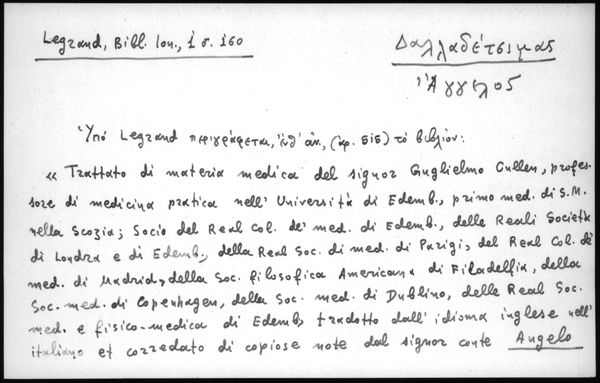 Legrand, Bibl. Ion., 1 σ. 160
Δαλλαδέτσιμας
Ἄγγελος
Ὑπό Legrand περιγράφεται, ἔνθ' ἀν., (ἀρ. 515) τό βιβλίον:
« Trattato di materia medica del signor Guglielmo Cullen, profes-
sore di medicina pratica nell' Università di Edemb., primo med. di S.M.
nella Scozia; Socio del Real Col. de' med. di Edemb., delle Reali Società
di Londra e di Edemb., della Real Soc. di med. di Parigi, del Real Col. de'
med. di Madrid, della Soc. filosofica Americana di Filadelfia, della
Soc. med. di Copenhagen, della Soc. med. di Dublino, delle Real Soc.
med. e fisico-medica di Edemb, tradotto dall' idioma inglese nell'
italiano et corredato di copiose note dal signor conte Angelo